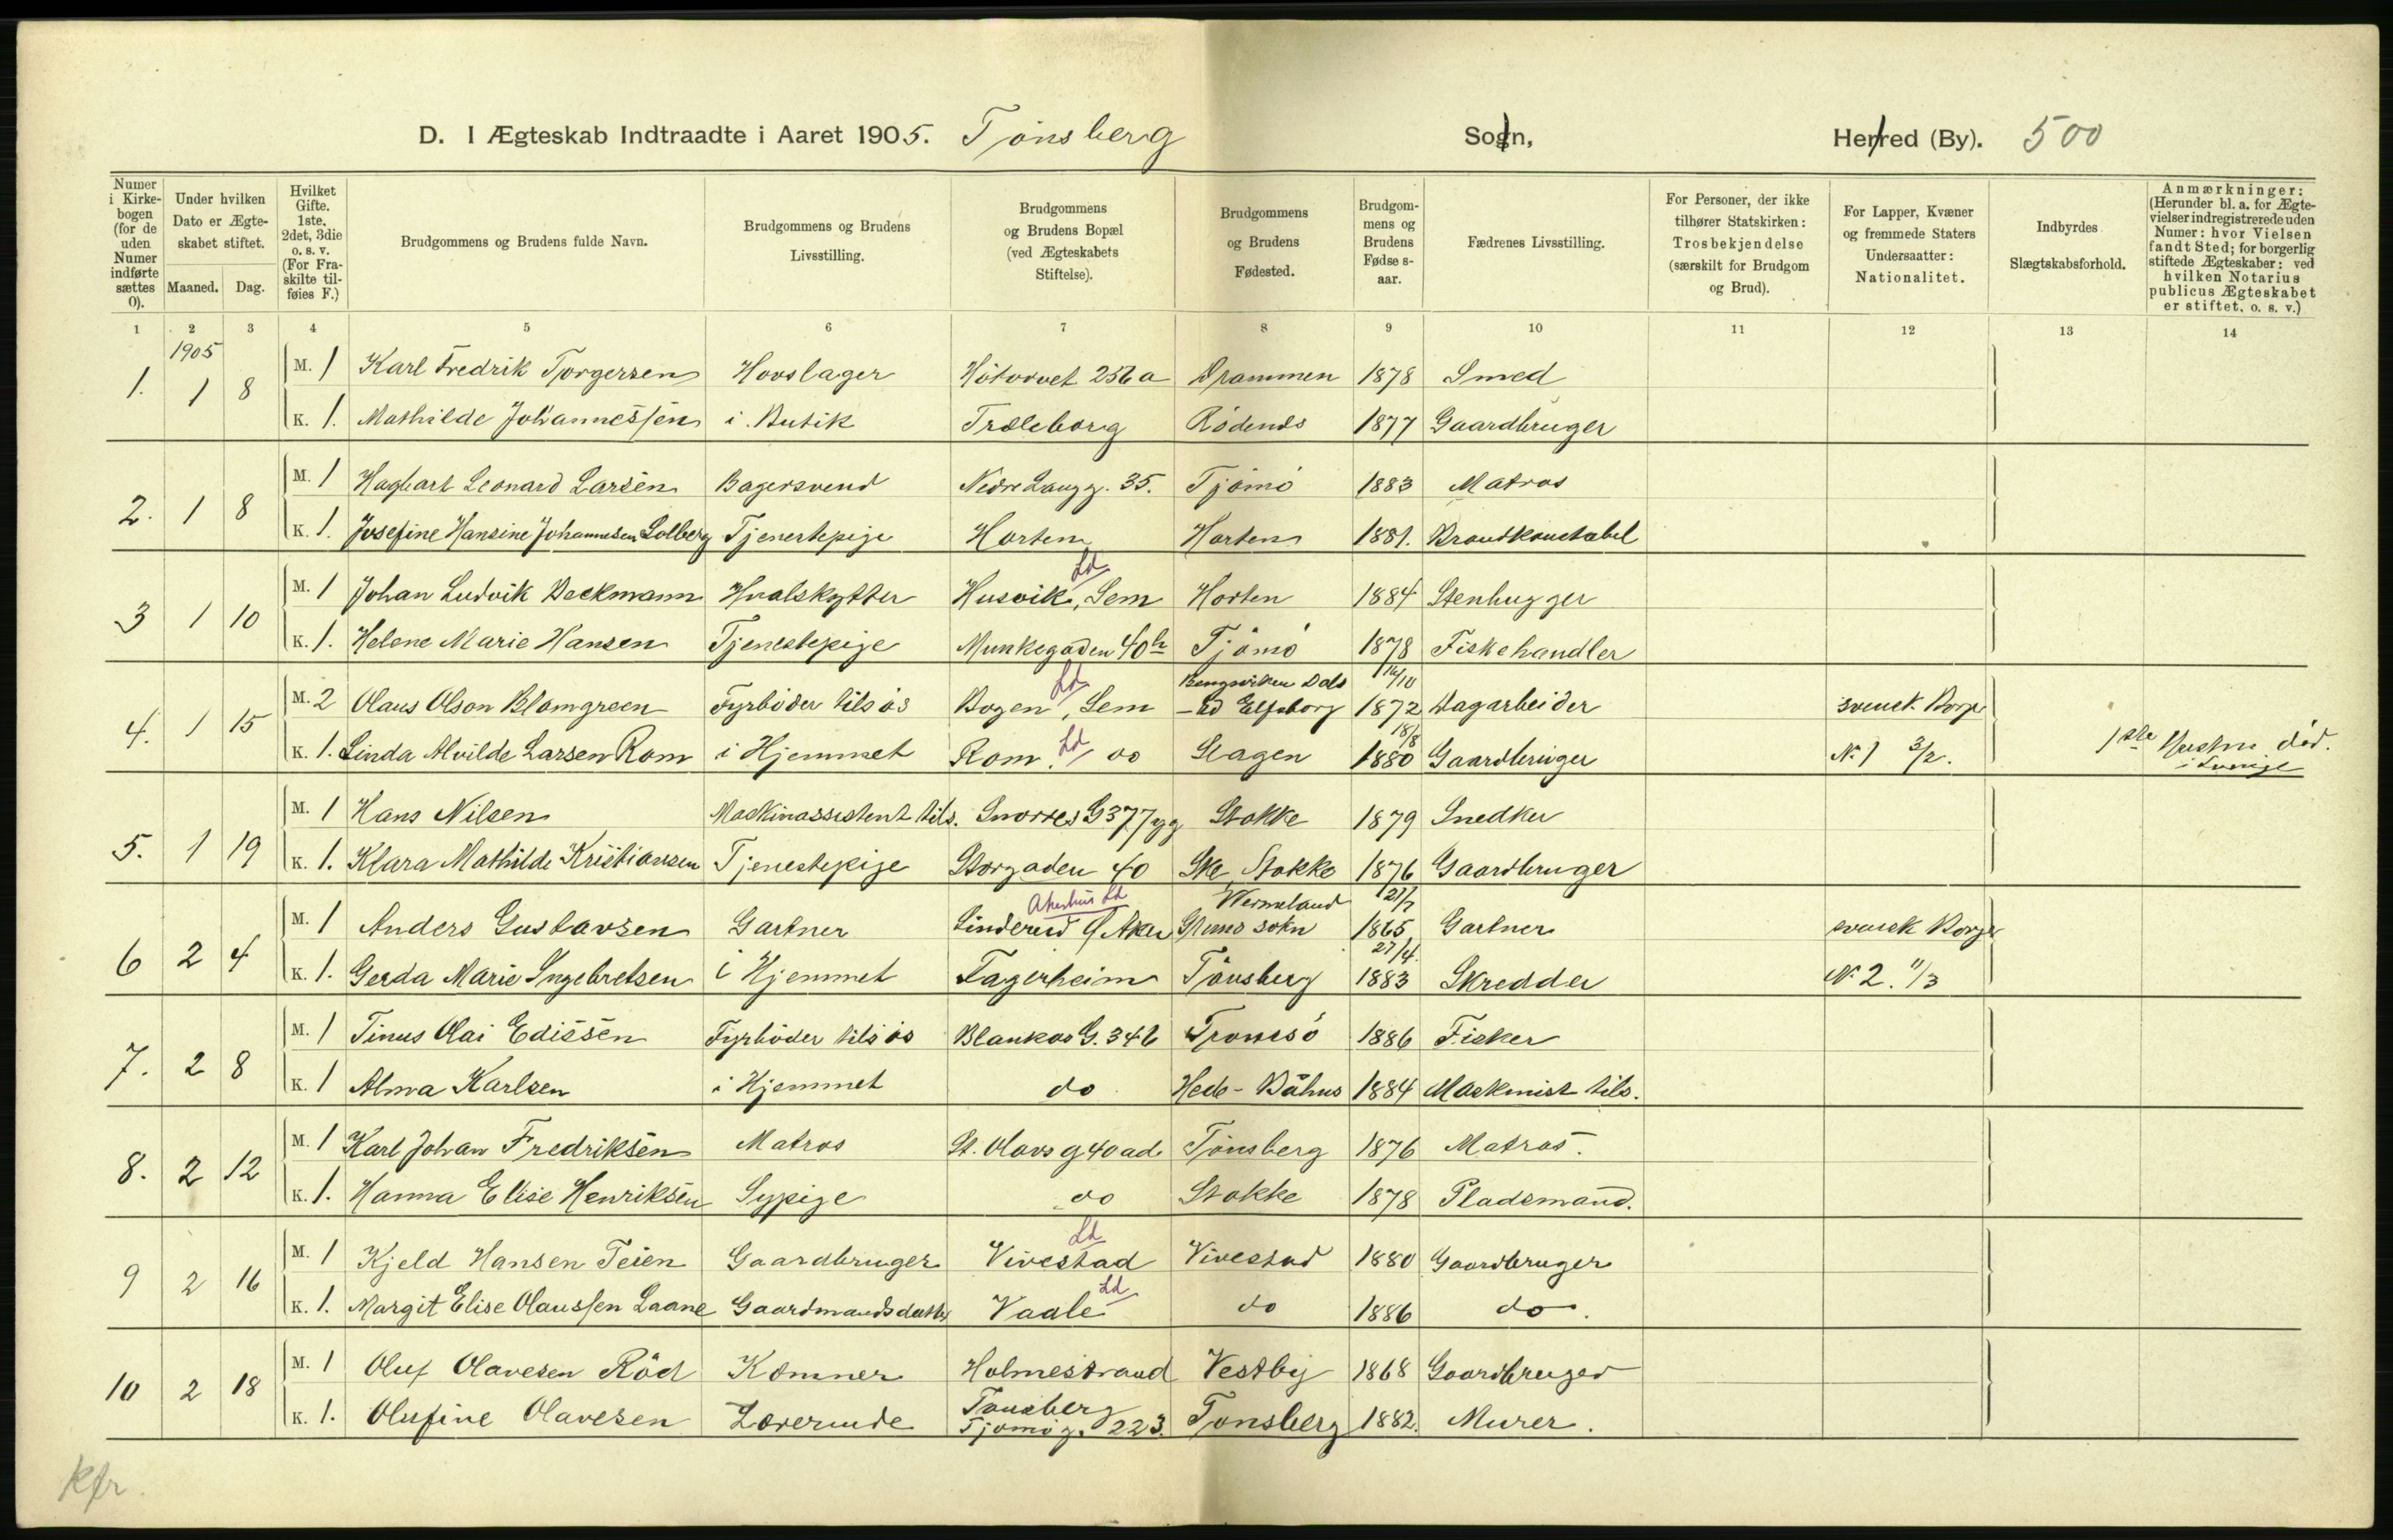 D. I Ægteskab Indtraadte i Aaret 1905. Tönsberg Sogn, Herred (By). 500
Numer i Kirkebogen (for de uden Numer indførte sættes 0).
Under hvilken Dato er Ægteskabet stiftet.
Maaned. Dag.
Hvilket Gifte. 1ste, 2det, 3die o. s. v. (For Fraskilte tilføies F.)
Brudgommens og Brudens fulde Navn.
Brudgommens og Brudens Livsstilling.
Brudgommens og Brudens Bopæl (ved Ægteskabets Stiftelse).
Brudgommens og Brudens Fødested.
Brudgommens og Brudens Fødselsaar.
Fædrenes Livsstilling.
For Personer, der ikke tilhører Statskirken: Trosbekjendelse (særskilt for Brudgom og Brud).
For Lapper, Kvæner og fremmede Staters Undersaatter: Nationalitet.
Indbyrdes Slægtskabsforhold.
Anmærkninger: (Herunder bl. a. for Ægtevielser indregistrerede uden Numer: hvor Vielsen fandt Sted; for borgerlig stiftede Ægteskaber: ved hvilken Notarius publicus Ægteskabet er stiftet, o. s. v.)
1 2 3 4 5 6 7 8 9 10 11 12 13 14
1905
1. 1 8 M. 1 Karl Fredrik Torgersen Hovslager Hötorvet 256 a Drammen 1878 Smed
K. 1. Mathilde Johannessen i Butik Træleborg Rödenes 1877 Gaardbruger
2. 1 8 M. 1 Hagbart Leonard Larsen Bagersvend Nedre Langg. 35. Tjömö 1883 Matros
K. 1. Josefine Hansine Johannesen Solberg Tjenestepige Horten Horten 1881. Brandkonstabel
Ld
3 1 10 M. 1 Johan Ludvik Beckmann Hvalskytter Husvik, Sem Horten 1884 Stenhugger
K. 1. Helene Marie Hansen Tjenestepige Munkegaden 40 b Tjömö 1878 Fiskehandler
Ld Dals 14/10
4. 1 15 M. 2 Olaus Olson Blomgreen Fyrböder tilsös Bogen, Sem Elfsborg 1872 Dagarbeider svensk Borger
18/8
K. 1. Linda Alvilde Larsen Rom i Hjemmet Rom. Ld do Slagen 1880 Gaardbruger No 1 3/2. 1ste Hustru död.
i Sverige
5. 1 19 M. 1 Hans Nilsen Maskinassistent tils. Snorres G 37 Stokke 1879 Snedker
K. 1. Klara Mathilde Kristiansen Tjenestepige Storgaden 40 Stokke 1876 Gaardbruger
Akershus Ld Wermeland 21/7
6 2 4 M. 1 Anders Gustavsen Gartner Linderud Aker sokn 1865 Gartner svensk Borger
27/4.
K. 1. Gerda Marie Ingebretsen i Hjemmet Fagerheim Tönsberg 1883 Skredder No 2. 11/3
7. 2 8 M. 1 Tinus Olai Edissen Fyrböder tilsös G. 34 b Tromsö 1886 Fisker
K. 1 Alma Karlsen i Hjemmet do Hede - Båhus 1884 Maskinist tils.
8. 2 12 M. 1 Karl Johan Fredriksen Matros St. Olavs g 40 ad. Tönsberg 1876 Matros.
K. 1. Hanna Elise Henriksen Sypige do Stokke 1878 Pladsmand.
Ld
9 2 16 M. 1 Kjeld Hansen Teien Gaardbruger Vivestad Vivestad 1880 Gaardbruger
Ld
K. 1. Margit Elise Olaussen Laane Gaardmandsdatter Vaale do 1886 do.
10 2 18 M. 1 Oluf Olavesen Röd Kæmner Holmestrand Vestby 1868 Gaardbruger
Tönsberg
K. 1. Olufine Olavesen Lærerinde Tjömög. 223. Tonsberg 1882. Murer.
Kfr.